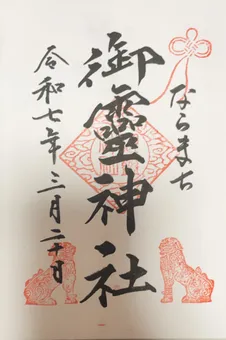 ならまち
御靈神社
令和七年三月二十日